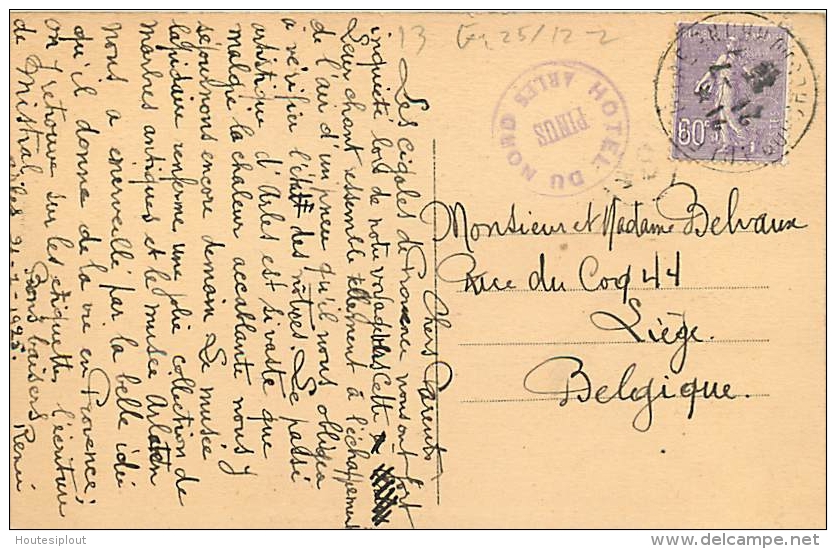 13 25/12-2
HOTEL DU NORD
PINUS
ARLES
60c
Monsieur et Madame Belvaux
Rue du Coq 44
Liège.
Belgique.
Chers Parents,
Les cigales de Provence nous ont fort
inquiété lors de notre voyage. Cette
Leur chant ressemble tellement à l'échappement
de l'air d'un pneu qu'il nous obligea
à vérifier l'état des nôtres. Le passé
artistique d'Arles est si vaste que
malgré la chaleur accablante nous y
séjournons encore demain. Le musée
lapidaire renferme une jolie collection de
marbres antiques et le musée Arlaten
nous a émerveillé par la belle idée
qu'il donne de la vie en Provence;
on retrouve sur les étiquettes l'écriture
de Mistral.
Bons baisers
René
Arles 21-7-1925.
Houtesiplout
delcampe.net